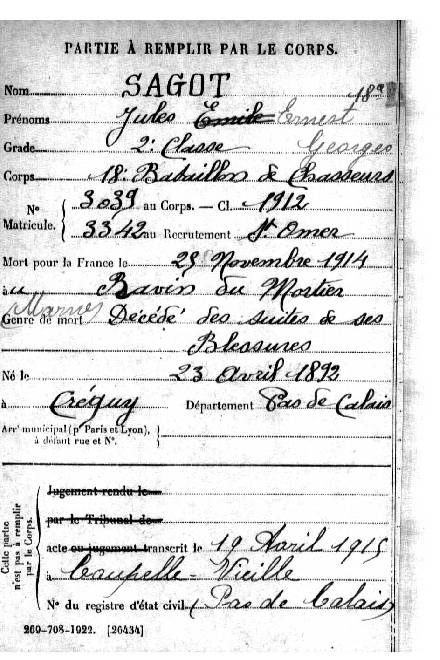 PARTIE À REMPLIR PAR LE CORPS.
Nom SAGOT
Prénoms Jules Emile Ernest
Grade 2e Classe Georges
Corps 18e Bataillon de Chasseurs
N° Matricule. 3039 au Corps. — Cl. 1912
3342 au Recrutement St Omer
Mort pour la France le 25 Novembre 1914
à au Ravin du Mortier
(Marne)
Genre de mort Décédé des suites de ses
Blessures
Né le 23 Avril 1892
à Créquy Département Pas de Calais
Arrt municipal (pr Paris et Lyon),
à défaut rue et N°.
Cette partie n'est pas à remplir par le Corps.
Jugement rendu le
par le Tribunal de
acte ou jugement transcrit le 19 Avril 1915
à Coupelle-Vieille
N° du registre d'état civil (Pas de Calais)
269-708-1922. [26434]